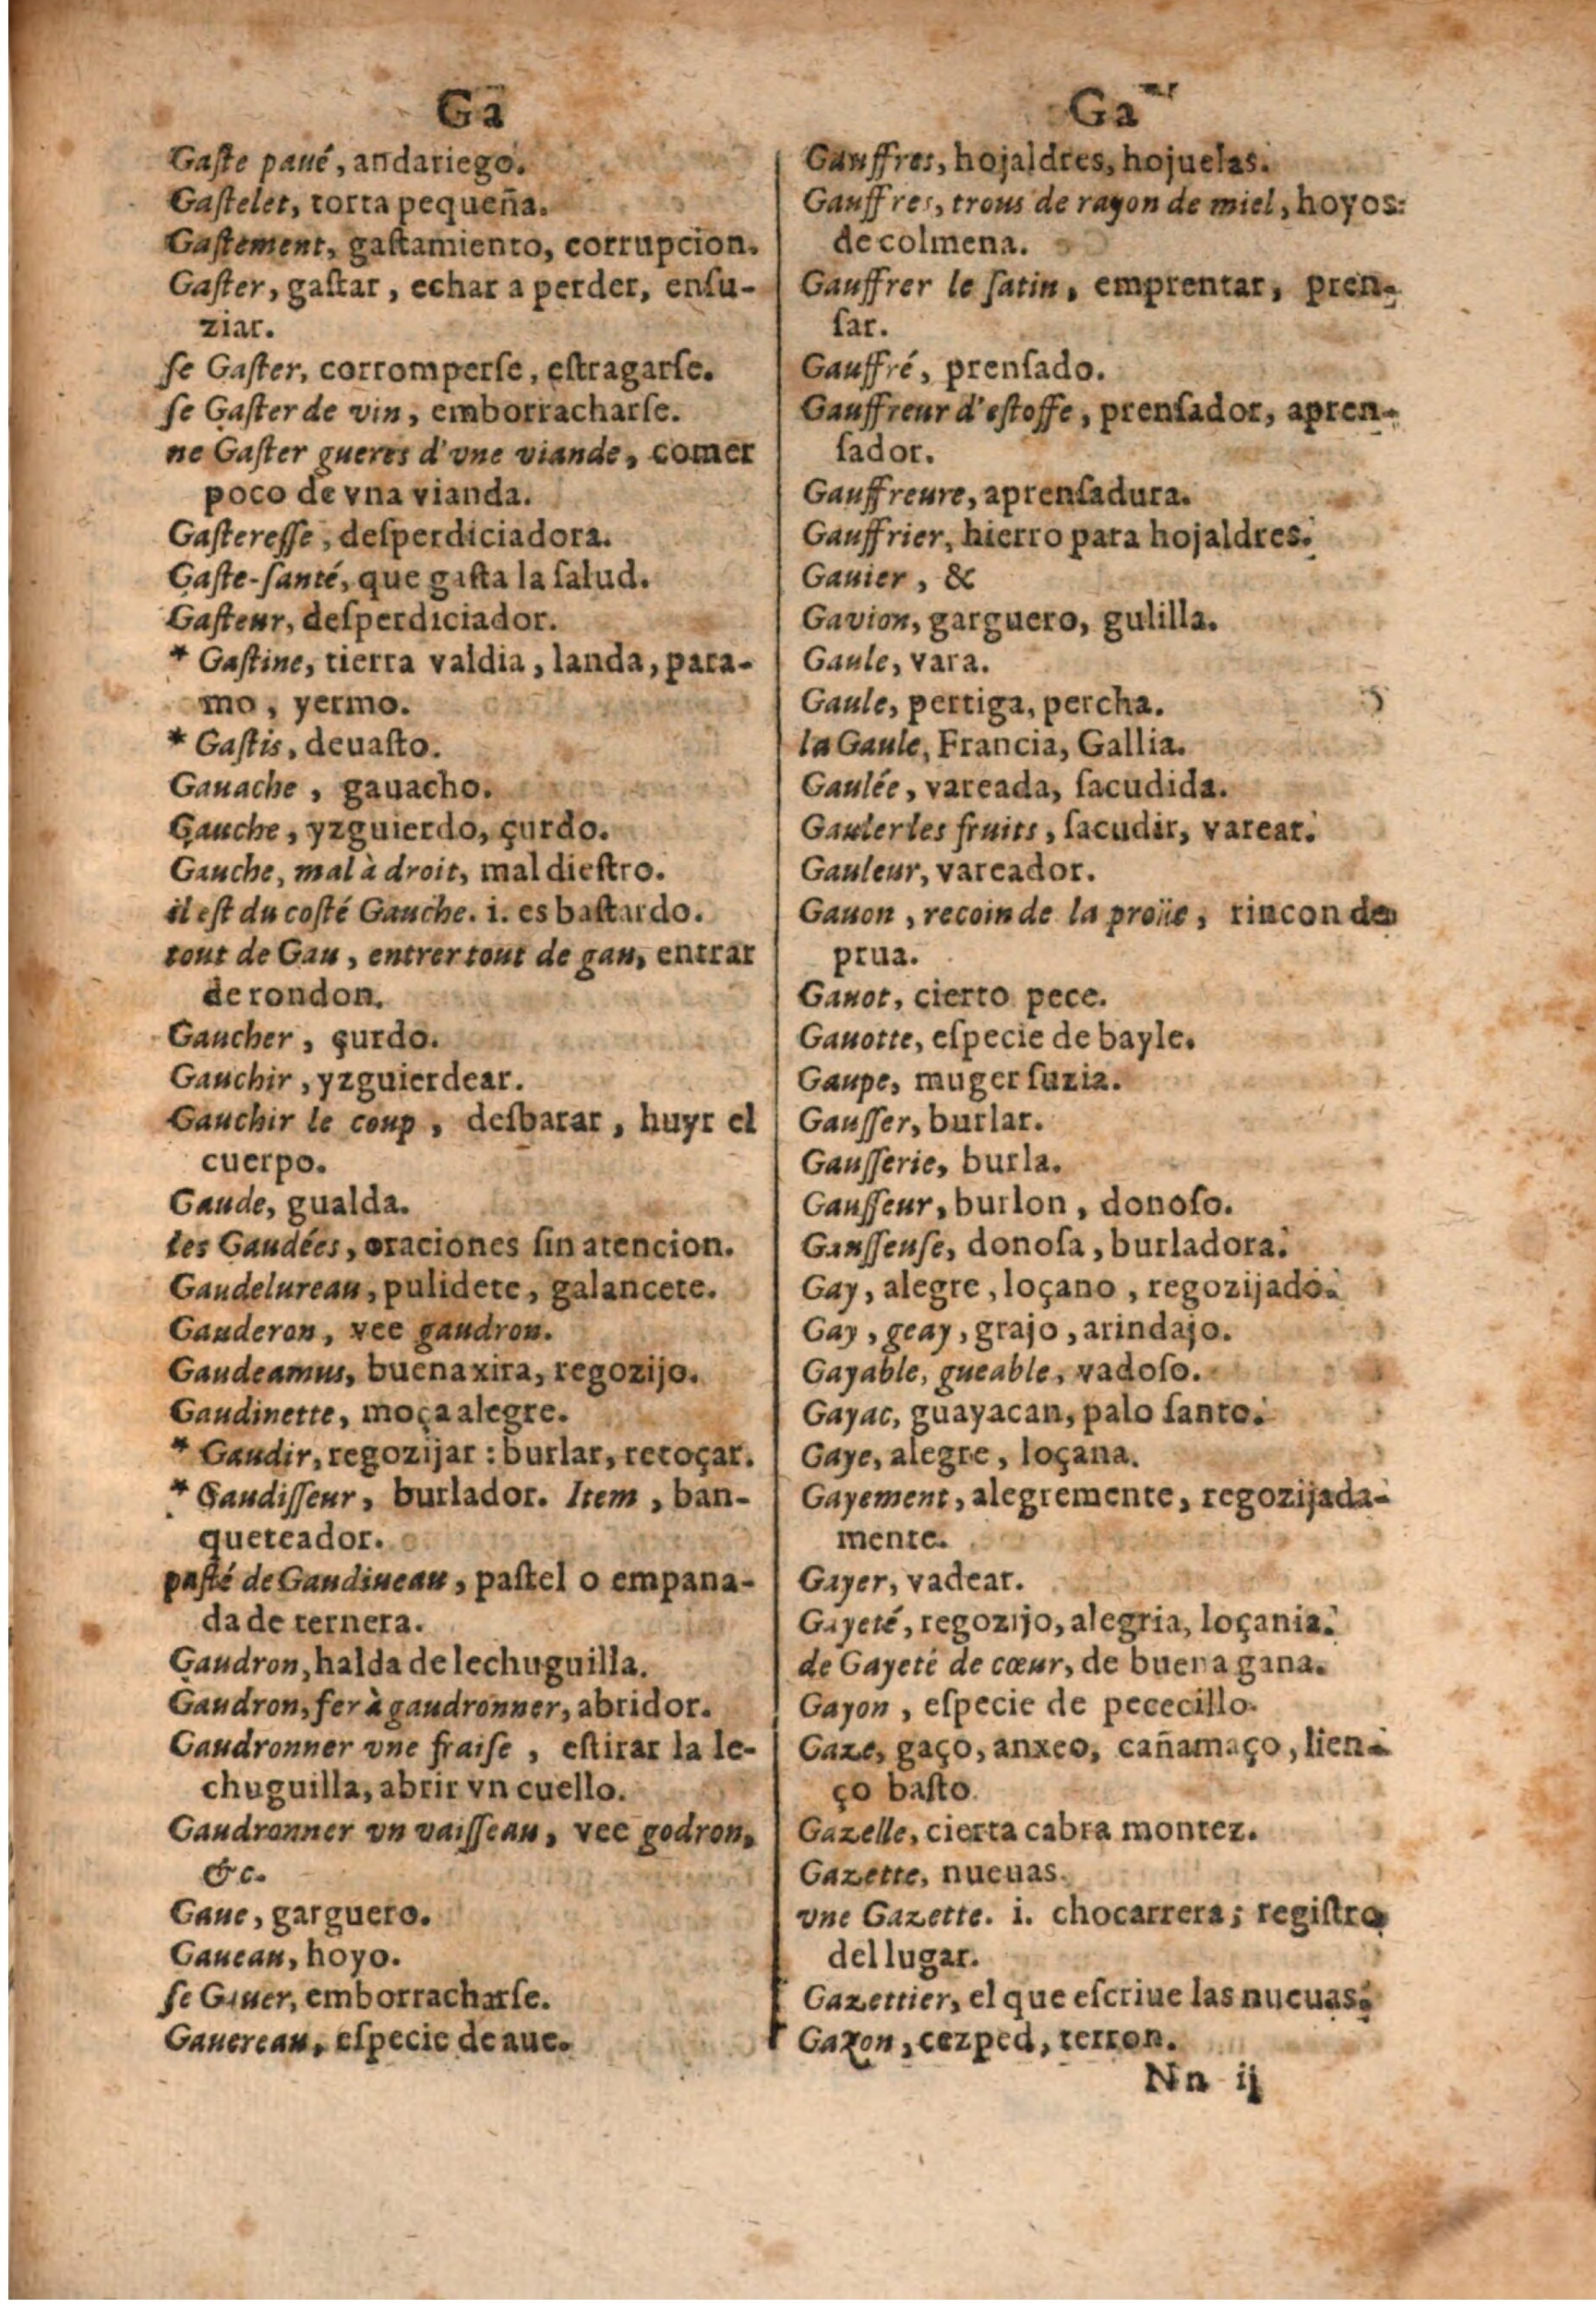 Ga
Gaſte paué, andariego.
Gaſtelet, torta pequeña.
Gaſtement, gaſtamiento, corrupcion.
Gaſter, gaſtar, echar a perder, enſu-
ziar.
ſe Gaſter, corromperſe, eſtragarſe.
ſe Gaſter de vin, emborracharſe.
ne Gaſter gueres d'vne viande, comer
poco de vna vianda.
Gaſtereſſe, deſperdiciadora.
Gaſte-ſanté, que gaſta la ſalud.
Gaſteur, deſperdiciador.
* Gaſtine, tierra valdia, landa, para-
mo, yermo.
* Gaſtis, deuaſto.
Gauache, gauacho.
Gauche, yzguierdo, çurdo.
Gauche, mal à droit, mal dieſtro.
il eſt du coſté Gauche. i. es baſtardo.
tout de Gau, entrer tout de gau, entrar
de rondon.
Gaucher, çurdo.
Gauchir, yzguierdear.
Gauchir le coup, deſbarar, huyr el
cuerpo.
Gaude, gualda.
les Gaudées, oraciones ſin atencion.
Gaudelureau, pulidete, galancete.
Gauderon, vee gaudron.
Gaudeamus, buena xira, regozijo.
Gaudinette, moça alegre.
* Gaudir, regozijar : burlar, retoçar.
* Gaudiſſeur, burlador. Item, ban-
queteador.
paſté de Gaudineau, paſtel o empana-
da de ternera.
Gaudron, halda de lechuguilla.
Gaudron, fer à gaudronner, abridor.
Gaudronner vne fraiſe, eſtirar la le-
chuguilla, abrir vn cuello.
Gaudronner vn vaiſſeau, vee godron,
&c.
Gaue, garguero.
Gaueau, hoyo.
ſe Gauer, emborracharſe.
Gauereau, eſpecie de aue.
Ga
Gauffres, hojaldres, hojuelas.
Gauffres, trous de rayon de miel, hoyos
de colmena.
Gauffrer le ſatin, emprentar, pren-
ſar.
Gauffré, prenſado.
Gauffreur d'eſtoffe, prenſador, apren-
ſador.
Gauffreure, aprenſadura.
Gauffrier, hierro para hojaldres.
Gauier, &
Gavion, garguero, gulilla.
Gaule, vara.
Gaule, pertiga, percha.
la Gaule, Francia, Gallia.
Gaulée, vareada, ſacudida.
Gauler les fruits, ſacudir, varear.
Gauleur, vareador.
Gauon, recoin de la proüe, rincon de
prua.
Gauot, cierto pece.
Gauotte, eſpecie de bayle.
Gaupe, muger ſuzia.
Gauſſer, burlar.
Gauſſerie, burla.
Gauſſeur, burlon, donoſo.
Gauſſeuſe, donoſa, burladora.
Gay, alegre, loçano, regozijado.
Gay, geay, grajo, arindajo.
Gayable, gueable, vadoſo.
Gayac, guayacan, palo ſanto.
Gaye, alegre, loçana.
Gayement, alegremente, regozijada-
mente.
Gayer, vadear.
Gayeté, regozijo, alegria, loçania.
de Gayeté de cœur, de buena gana.
Gayon, eſpecie de pececillo.
Gaze, gaço, anxeo, cañamaço, lien-
ço baſto.
Gazelle, cierta cabra montez.
Gazette, nueuas.
vne Gazette. i. chocarrera; regiſtro
del lugar.
Gazettier, el que eſcriue las nueuas.
Gazon, cezped, terron.
Nn ij